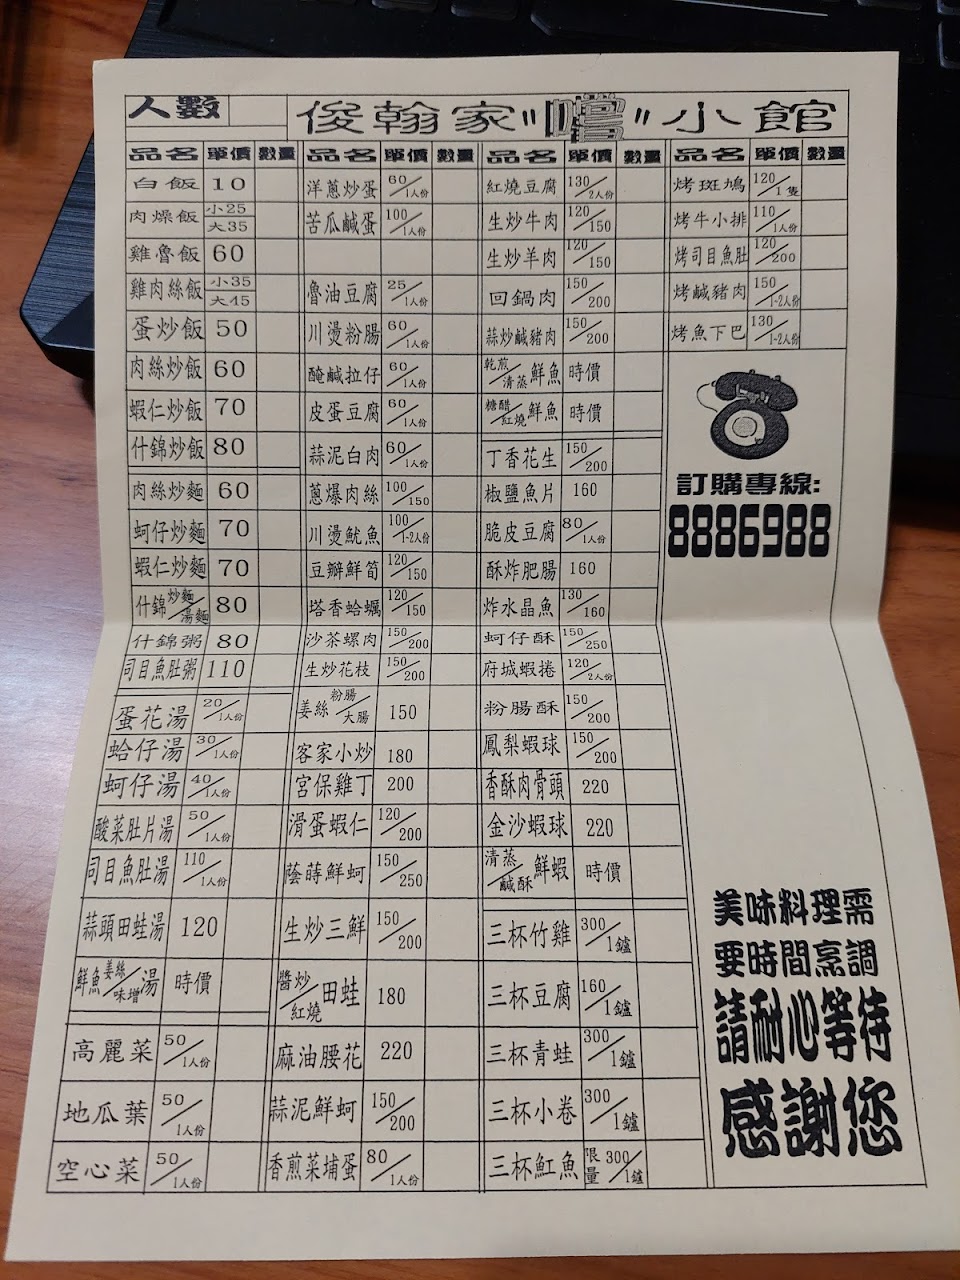 人數
俊翰家"嚐"小館
品名 單價 數量
白飯 10
肉燥飯 小25 大35
雞魯飯 60
雞肉絲飯 小35 大45
蛋炒飯 50
肉絲炒飯 60
蝦仁炒飯 70
什錦炒飯 80
肉絲炒麵 60
蚵仔炒麵 70
蝦仁炒麵 70
什錦炒麵/湯麵 80
什錦粥 80
司目魚肚粥 110
蛋花湯 20/1人份
蛤仔湯 30/1人份
蚵仔湯 40/1人份
酸菜肚片湯 50/1人份
司目魚肚湯 110/1人份
蒜頭田蛙湯 120
鮮魚姜絲/味增湯 時價
高麗菜 50/1人份
地瓜葉 50/1人份
空心菜 50/1人份
品名 單價 數量
洋蔥炒蛋 60/1人份
苦瓜鹹蛋 100/1人份
魯油豆腐 25/1人份
川燙粉腸 60/1人份
醃鹹拉仔 60/1人份
皮蛋豆腐 60/1人份
蒜泥白肉 60/1人份
蔥爆肉絲 100/150
川燙魷魚 100/1-2人份
豆瓣鮮筍 120/150
塔香蛤蠣 120/150
沙茶螺肉 150/200
生炒花枝 150/200
姜絲粉腸/大腸 150
客家小炒 180
宮保雞丁 200
滑蛋蝦仁 120/200
蔭蒔鮮蚵 150/250
生炒三鮮 150/200
醬炒/紅燒田蛙 180
麻油腰花 220
蒜泥鮮蚵 150/200
香煎菜埔蛋 80/1人份
品名 單價 數量
紅燒豆腐 130/2人份
生炒牛肉 120/150
生炒羊肉 120/150
回鍋肉 150/200
蒜炒鹹豬肉 150/200
乾煎/清蒸鮮魚 時價
糖醋/紅燒鮮魚 時價
丁香花生 150/200
椒鹽魚片 160
脆皮豆腐 80/1人份
酥炸肥腸 160
炸水晶魚 130/160
蚵仔酥 150/250
府城蝦捲 120/2人份
粉腸酥 150/200
鳳梨蝦球 150/200
香酥肉骨頭 220
金沙蝦球 220
清蒸/鹹酥鮮蝦 時價
三杯竹雞 300/1鑪
三杯豆腐 160/1鑪
三杯青蛙 300/1鑪
三杯小卷 300/1鑪
三杯魟魚 限量 300/1鑪
品名 單價 數量
烤斑鳩 120/1隻
烤牛小排 110/1人份
烤司目魚肚 120/200
烤鹹豬肉 150/1-2人份
烤魚下巴 130/1-2人份
訂購專線:
8886988
美味料理需
要時間烹調
請耐心等待
感謝您